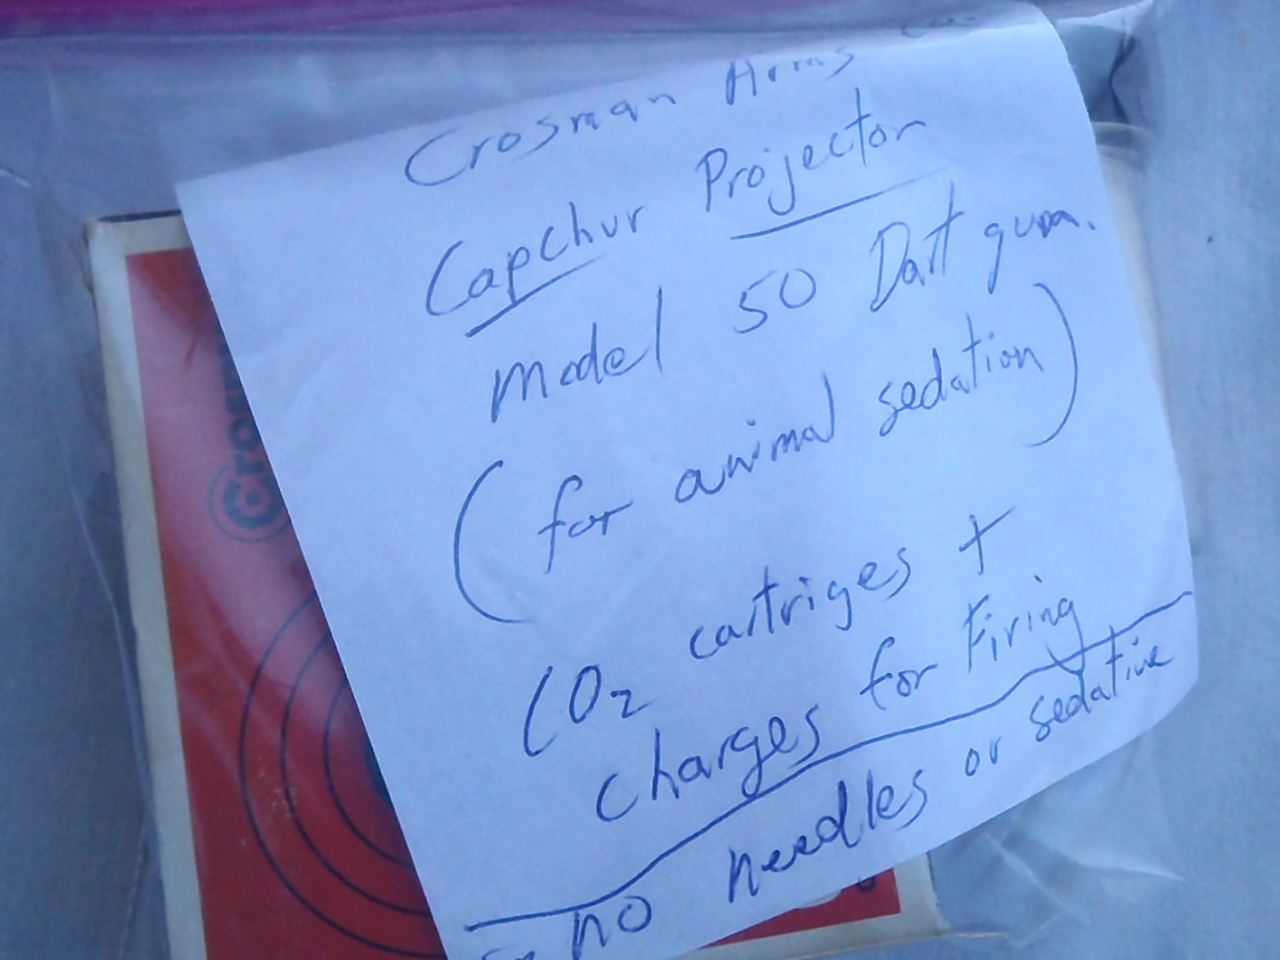 Crosman Arms
Capchur Projector
Model 50 Dart gun.
(for animal sedation)
CO2 cartriges +
charges for Firing
no needles or sedative
Cros